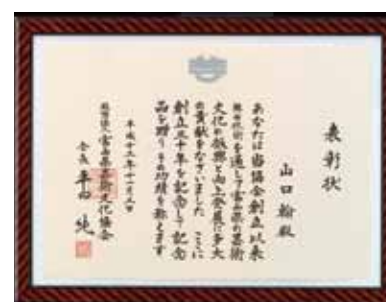 表彰状
山口翰殿
あなたは当協会創立以来
を通して富山県の芸術
文化の振興と向上発展に多大
の貢献をなさいました ここに
創立三十年を記念して記念
品を贈りその功績を称えます
平成十三年十一月三日
富山県芸術文化協会
会長